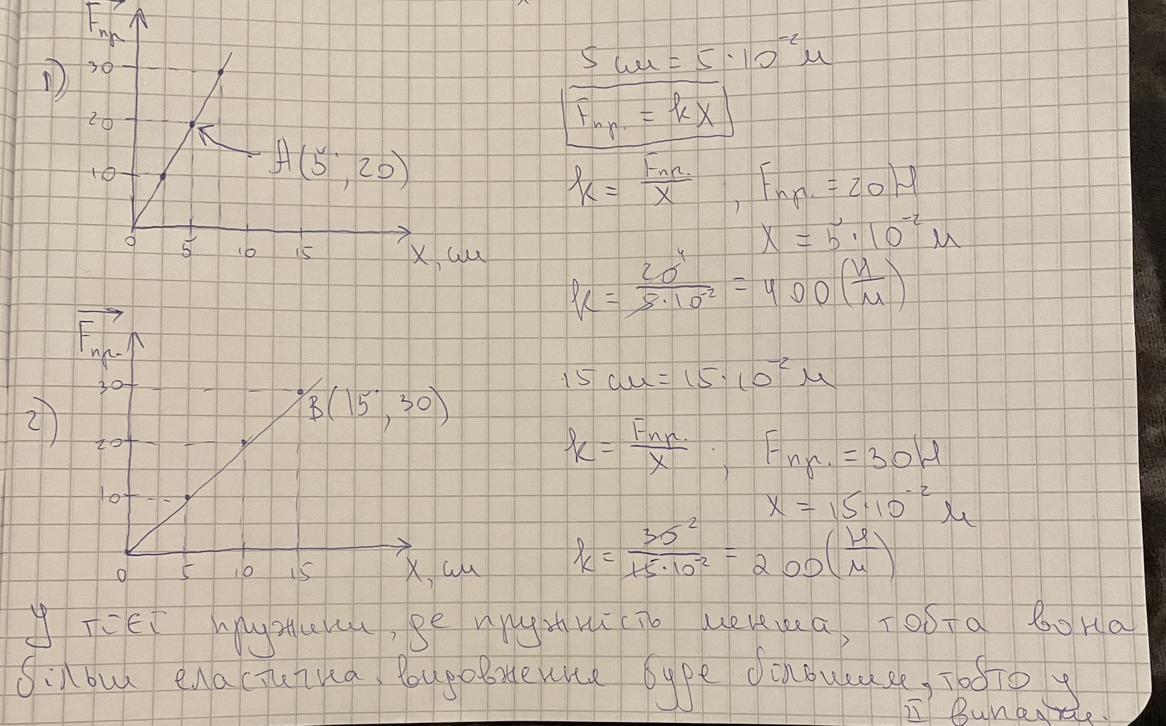 1)
F пр.
30
20
10
A(5; 20)
0 5 10 15 X, см
5 см = 5·10⁻² м
Fпр. = kX
k = Fпр./X , Fпр. = 20 Н
X = 5·10⁻² м
k = 20/5·10⁻² = 400 (Н/м)
2)
Fпр.
30
20
10
B(15; 30)
0 5 10 15 X, см
15 см = 15·10⁻² м
k = Fпр./X ; Fпр. = 30 Н
X = 15·10⁻² м
k = 30/15·10⁻² = 200 (Н/м)
У тієї пружини, де пружність менша, тобта вона
більш еластична, видовження буде більшим, тобто у
II випадку.